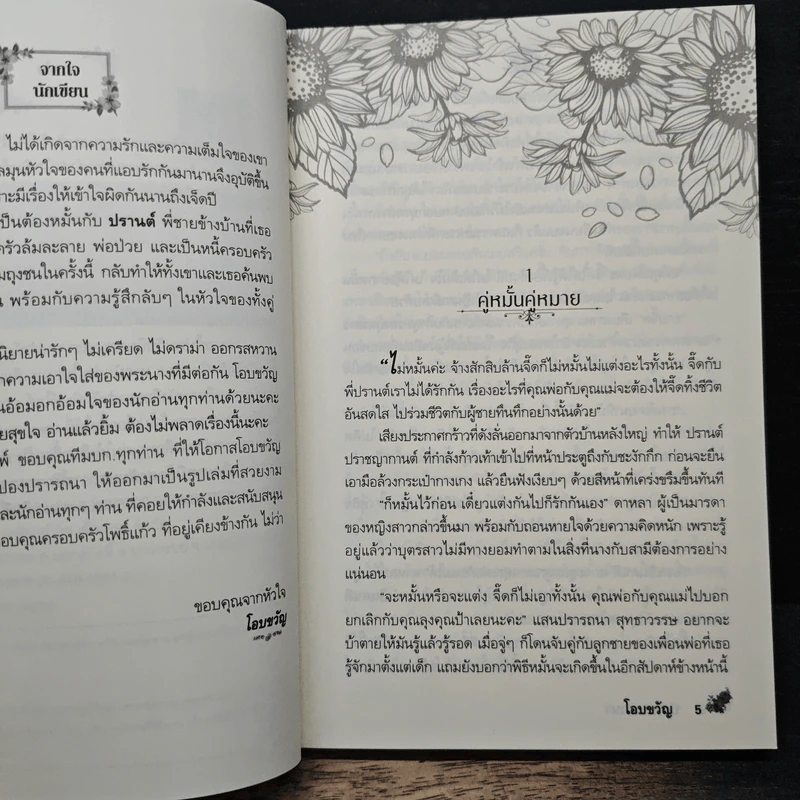 จากใจ
นักเขียน
ไม่ได้เกิดจากความรักและความเต็มใจของเขา
มุนหัวใจของคนที่แอบรักกันมานานจึงอุบัติขึ้น
ะมีเรื่องให้เข้าใจผิดกันนานถึงเจ็ดปี
เป็นต้องหมั้นกับ ปรานต์ พี่ชายข้างบ้านที่เธอ
ครัวล้มละลาย พ่อป่วย และเป็นหนี้ครอบครัว
มถุงชนในครั้งนี้ กลับทำให้ทั้งเขาและเธอค้นพบ
พร้อมกับความรู้สึกลับๆ ในหัวใจของทั้งคู่
นิยายน่ารักๆ ไม่เครียด ไม่ดราม่า ออกรสหวาน
ความเอาใจใส่ของพระนางที่มีต่อกัน โอบขวัญ
นอ้อมอกอ้อมใจของนักอ่านทุกท่านด้วยนะคะ
ยสุขใจ อ่านแล้วยิ้ม ต้องไม่พลาดเรื่องนี้นะคะ
พ์ ขอบคุณทีมบก.ทุกท่าน ที่ให้โอกาสโอบขวัญ
ปองปรารถนา ให้ออกมาเป็นรูปเล่มที่สวยงาม
ละนักอ่านทุกๆ ท่าน ที่คอยให้กำลังและสนับสนุน
อบคุณครอบครัวโพธิ์แก้ว ที่อยู่เคียงข้างกัน ไม่ว่า
ขอบคุณจากหัวใจ
โอบขวัญ
1
คู่หมั้นคู่หมาย
“ไม่หมั้นค่ะ จ้างสักสิบล้านจี๊ดก็ไม่หมั้นไม่แต่งอะไรทั้งนั้น จี๊ดกับ
พี่ปรานต์เราไม่ได้รักกัน เรื่องอะไรที่คุณพ่อกับคุณแม่จะต้องให้จี๊ดทิ้งชีวิต
อันสดใส ไปร่วมชีวิตกับผู้ชายทึนทึกอย่างนั้นด้วย”
เสียงประกาศกร้าวที่ดังลั่นออกมาจากตัวบ้านหลังใหญ่ ทำให้ ปรานต์
ปราชญากานต์ ที่กำลังก้าวเท้าเข้าไปที่หน้าประตูถึงกับชะงักกึก ก่อนจะยืน
เอามือล้วงกระเป๋ากางเกง แล้วยืนฟังเงียบๆ ด้วยสีหน้าที่เคร่งขรึมขึ้นทันที
“ก็หมั้นไว้ก่อน เดี๋ยวแต่งกันไปก็รักกันเอง” ดาหลา ผู้เป็นมารดา
ของหญิงสาวกล่าวขึ้นมา พร้อมกับถอนหายใจด้วยความคิดหนัก เพราะรู้
อยู่แล้วว่าบุตรสาวไม่มีทางยอมทำตามในสิ่งที่นางกับสามีต้องการอย่าง
แน่นอน
“จะหมั้นหรือจะแต่ง จี๊ดก็ไม่เอาทั้งนั้น คุณพ่อกับคุณแม่ไปบอก
ยกเลิกกับคุณลุงคุณป้าเลยนะคะ” แสนปรารถนา สุทธาวรรษ อยากจะ
บ้าตายให้มันรู้แล้วรู้รอด เมื่อจู่ๆ ก็โดนจับคู่กับลูกชายของเพื่อนพ่อที่เธอ
รู้จักมาตั้งแต่เด็ก แถมยังบอกว่าพิธีหมั้นจะเกิดขึ้นในอีกสัปดาห์ข้างหน้านี้
โอบขวัญ 5